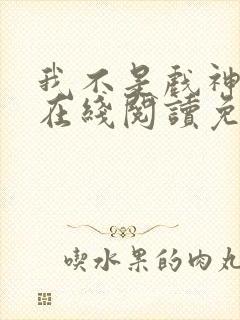 我不是戲神
在綫閱讀免
喫水果的肉丸